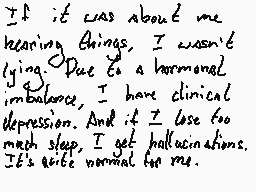 If it was about me
hearing things, I wasn't
lying. Due to a hormonal
imbalance, I have clinical
depression. And if I lose too
much sleep, I get hallucinations.
It's quite normal for me.